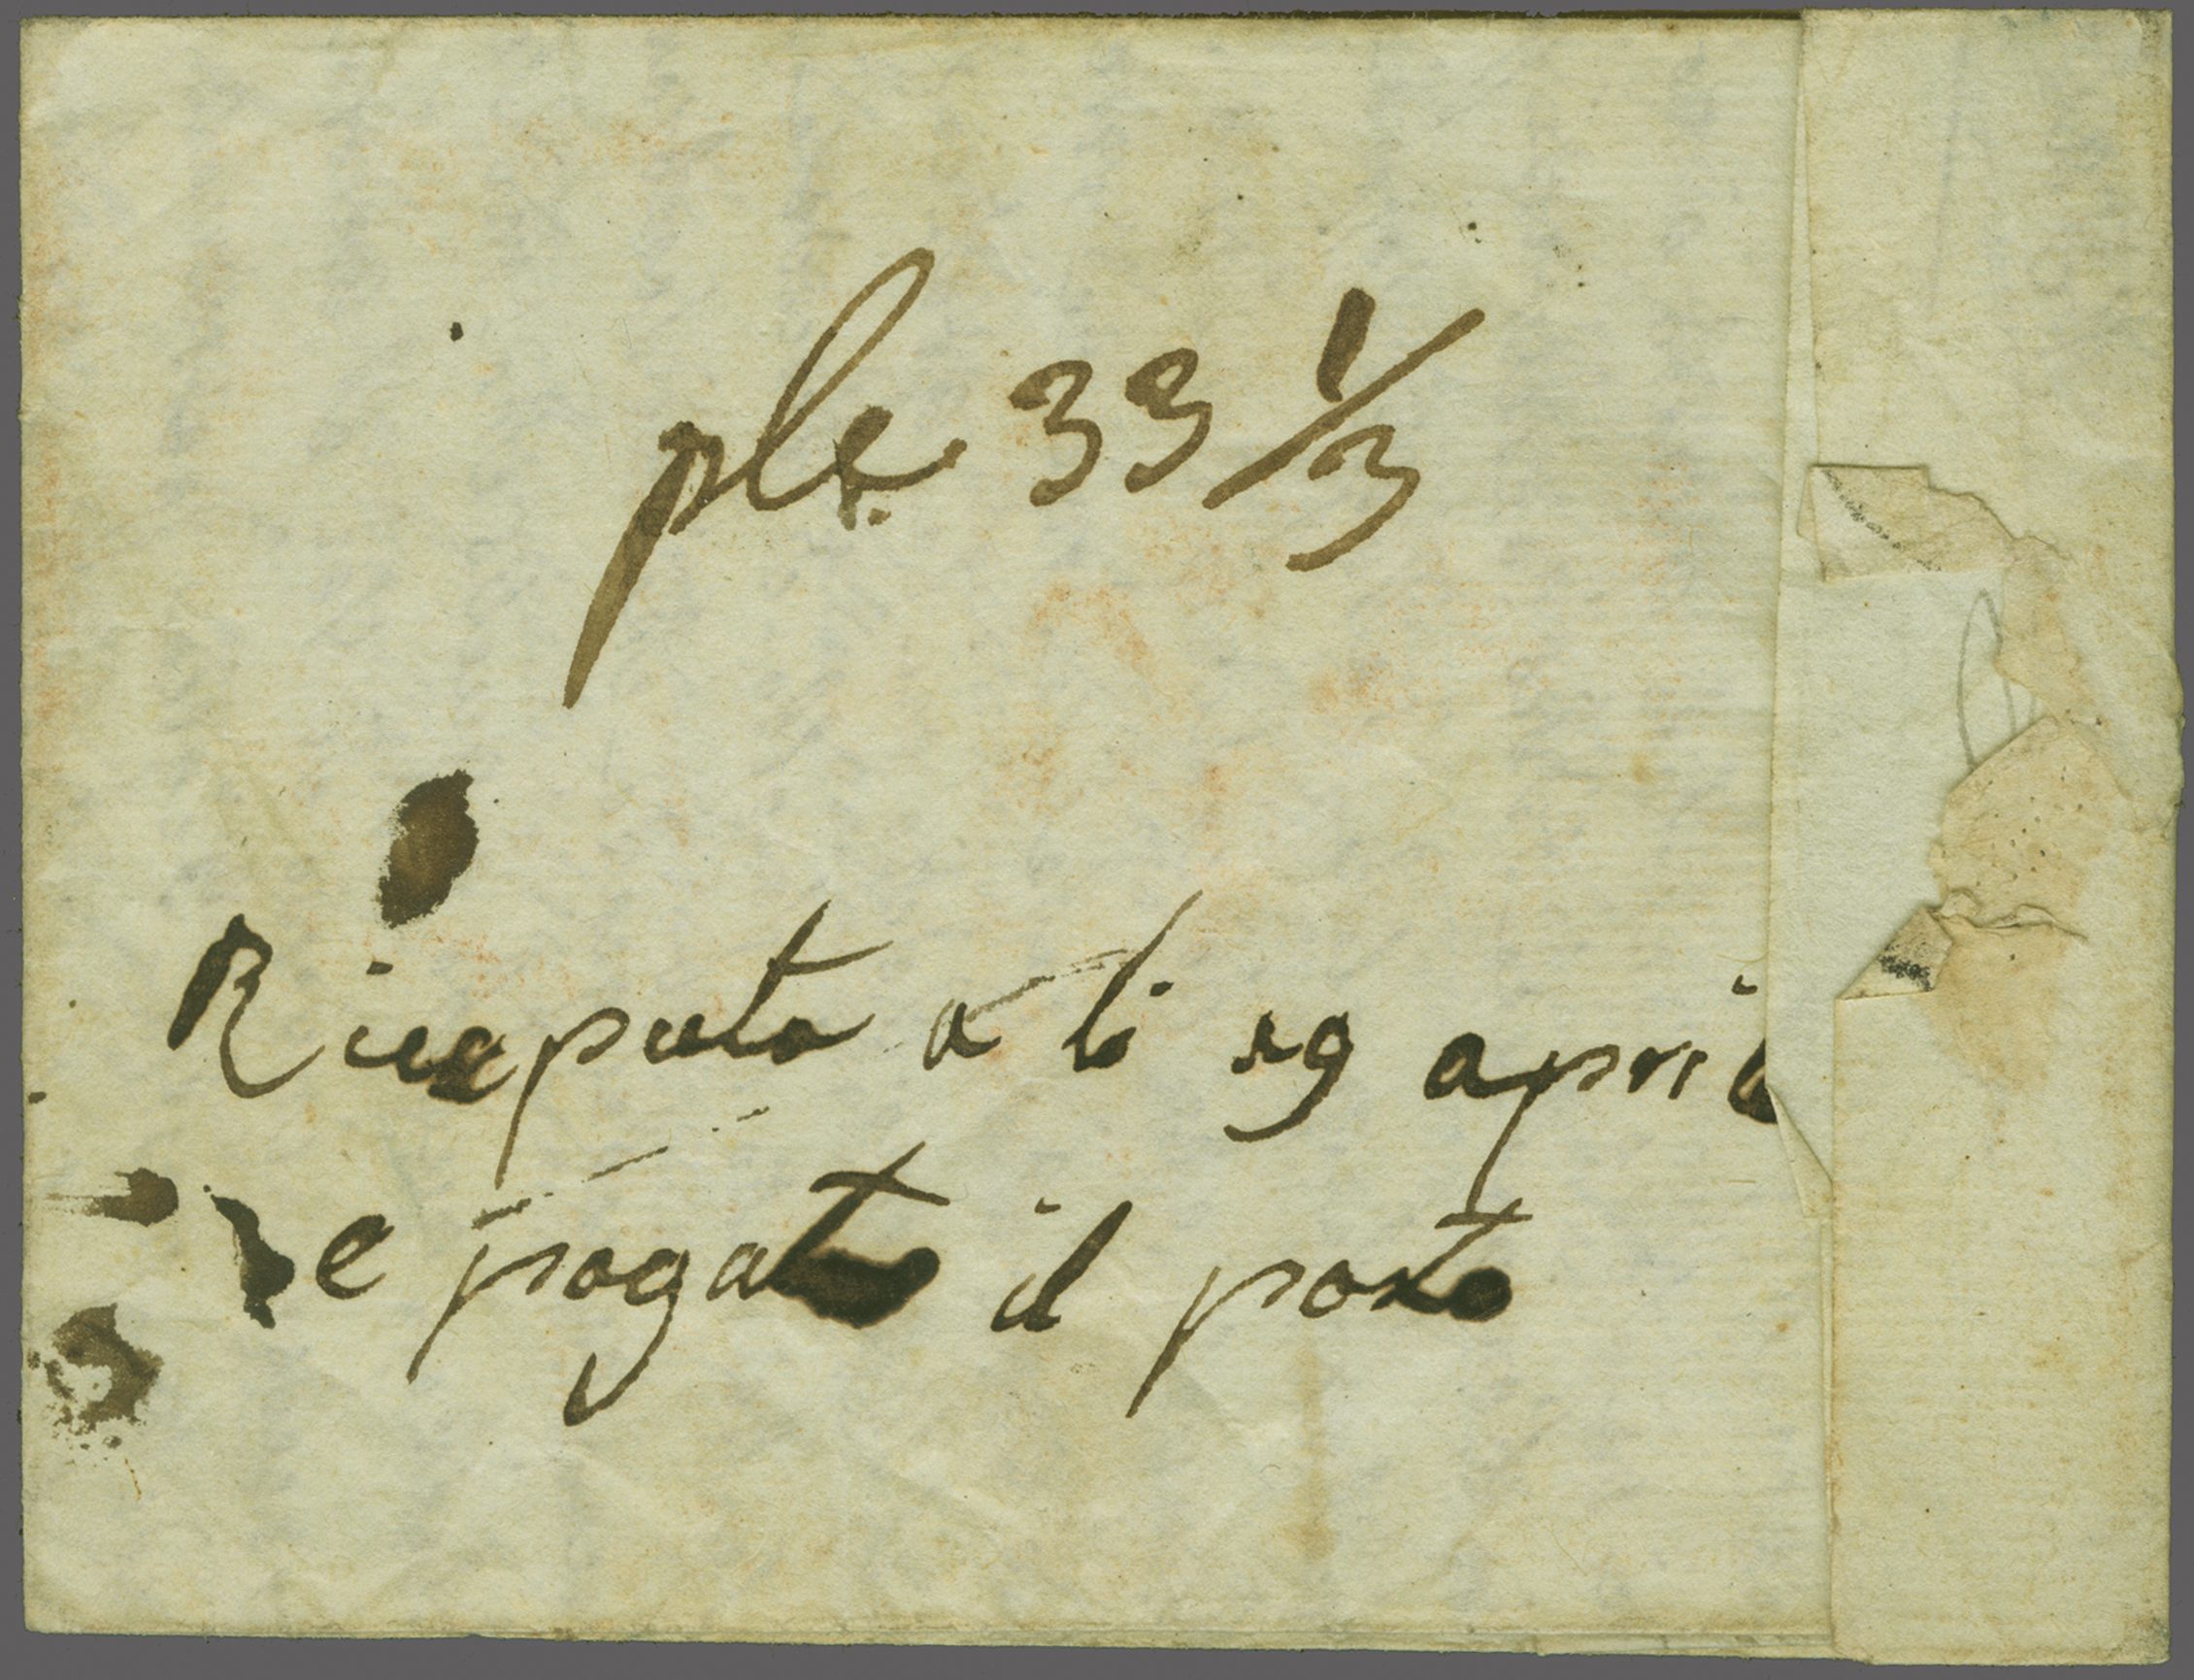 ple. 33 1/3
Riceputa a li 29 april
e pagato il porto